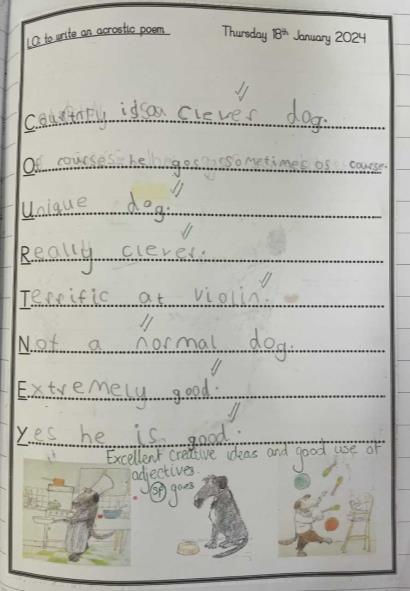 LO: to write an acrostic poem
Thursday 18th January 2024
Courtney is a clever dog.
Of course he goes sometimes of course.
Unique dog.
Really clever.
Terrific at violin.
Not a normal dog.
Extremely good.
Yes he is good.
Excellent creative ideas and good use of
adjectives.
SP goes